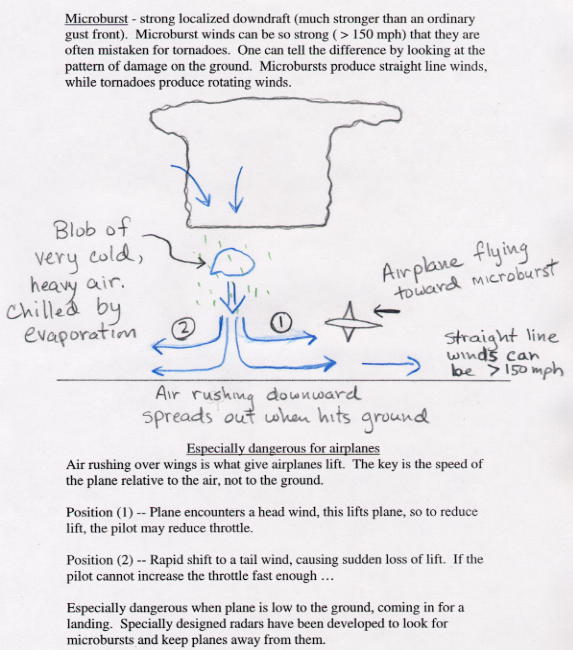 Microburst - strong localized downdraft (much stronger than an ordinary
gust front). Microburst winds can be so strong ( > 150 mph) that they are
often mistaken for tornadoes. One can tell the difference by looking at the
pattern of damage on the ground. Microbursts produce straight line winds,
while tornadoes produce rotating winds.
Blob of
very cold,
heavy air.
Chilled by
evaporation
Airplane flying
toward microburst
2
1
Straight line
winds can
be >150 mph
Air rushing downward
spreads out when hits ground
Especially dangerous for airplanes
Air rushing over wings is what give airplanes lift. The key is the speed of
the plane relative to the air, not to the ground.
Position (1) -- Plane encounters a head wind, this lifts plane, so to reduce
lift, the pilot may reduce throttle.
Position (2) -- Rapid shift to a tail wind, causing sudden loss of lift. If the
pilot cannot increase the throttle fast enough …
Especially dangerous when plane is low to the ground, coming in for a
landing. Specially designed radars have been developed to look for
microbursts and keep planes away from them.